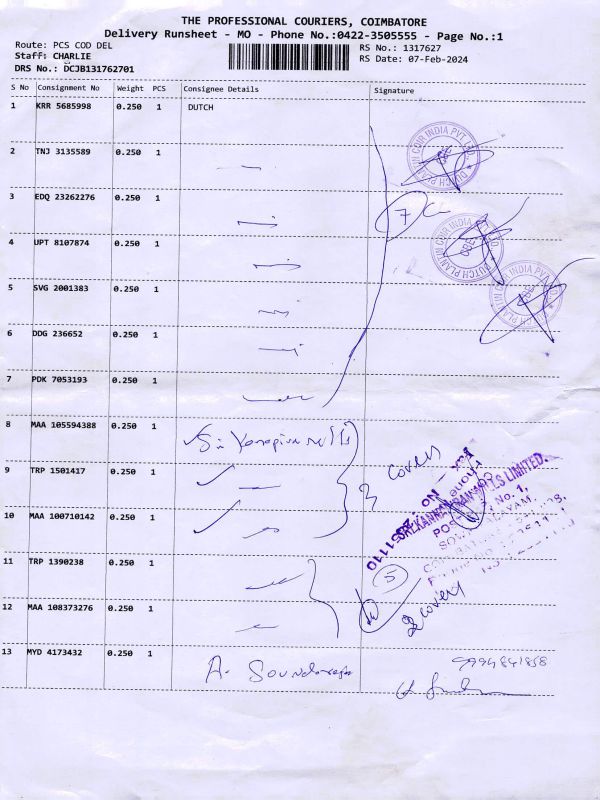 THE PROFESSIONAL COURIERS, COIMBATORE
Delivery Runsheet - MO - Phone No.:0422-3505555 - Page No.:1
Route: PCS COD DEL
RS No.: 1317627
Staff: CHARLIE
RS Date: 07-Feb-2024
DRS No.: DCJB131762701
S No Consignment No Weight PCS Consignee Details Signature
1 KRR 5685998 0.250 1 DUTCH
2 TNJ 3135589 0.250 1
3 EDQ 23262276 0.250 1
7
4 UPT 8107874 0.250 1
5 SVG 2001383 0.250 1
6 DDG 236652 0.250 1
7 PDK 7053193 0.250 1
8 MAA 105594388 0.250 1
9 TRP 1501417 0.250 1
3 covers
10 MAA 100710142 0.250 1
11 TRP 1390238 0.250 1
5
12 MAA 108373276 0.250 1
covery
13 MYD 4173432 0.250 1 A. Soundararajan
9994841858
DUTCH PLANTIN COIR INDIA PVT. LTD.
DUTCH PLANTIN COIR INDIA PVT. LTD.
DUTCH PLANTIN COIR INDIA PVT. LTD.
LIMITED.
No. 1,